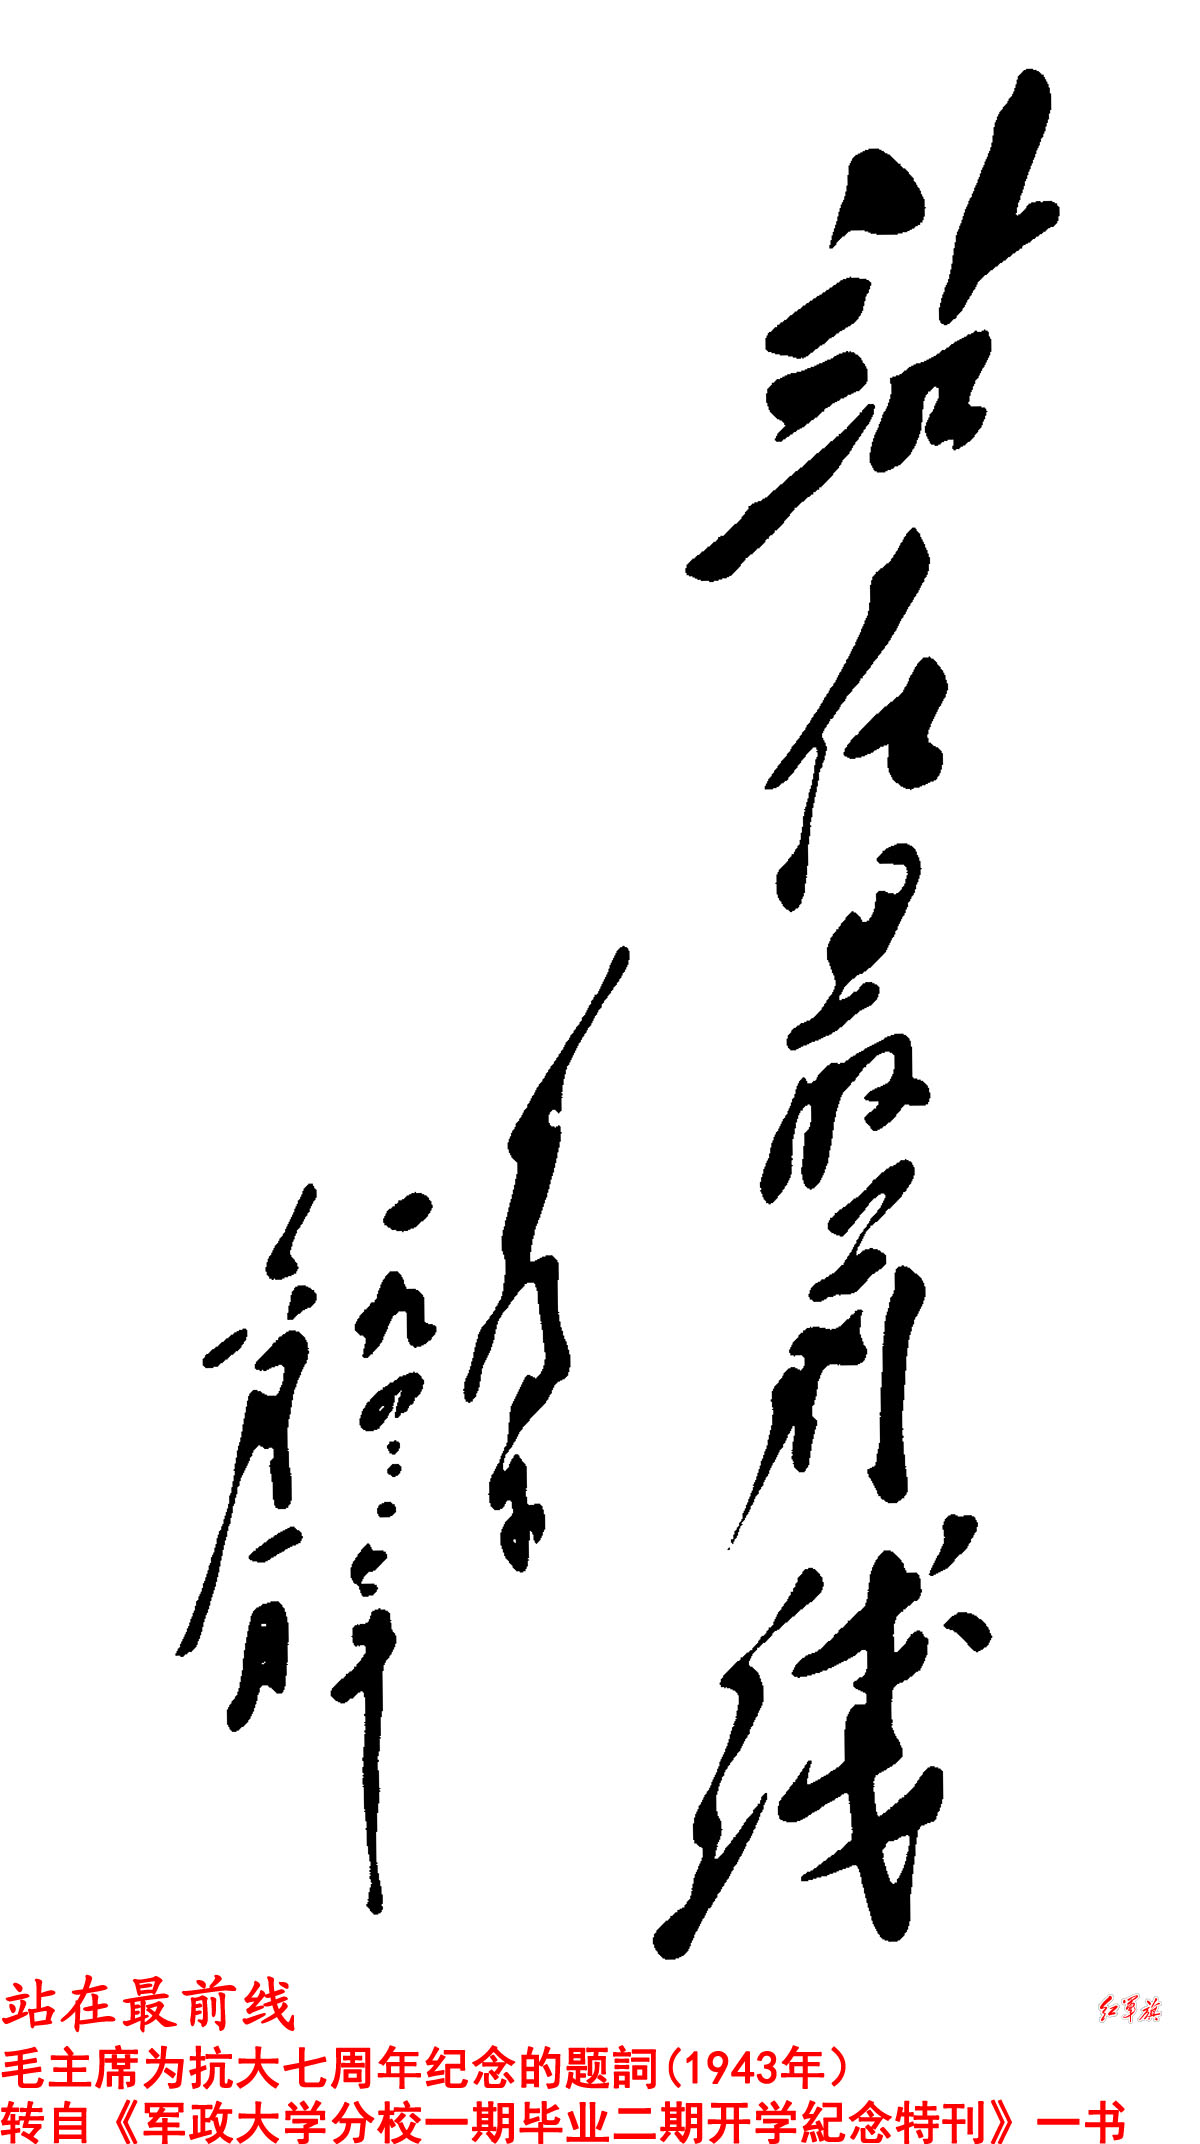 站在最前綫
毛泽东
一九四三年
六月一日
站在最前线
红军旗
毛主席为抗大七周年纪念的题詞(1943年）
转自《军政大学分校一期毕业二期开学紀念特刊》一书